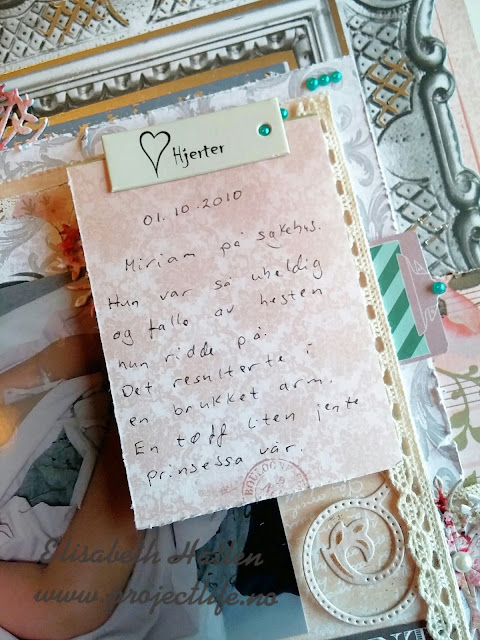 Hjerter
01.10.2010
Miriam på sykehus.
Hun var så uheldig
og falle av hesten
hun ridde på.
Det resulterte i
en brukket arm.
En tøff liten jente
prinsessa vår.
Elisabeth
www.projectlife.no